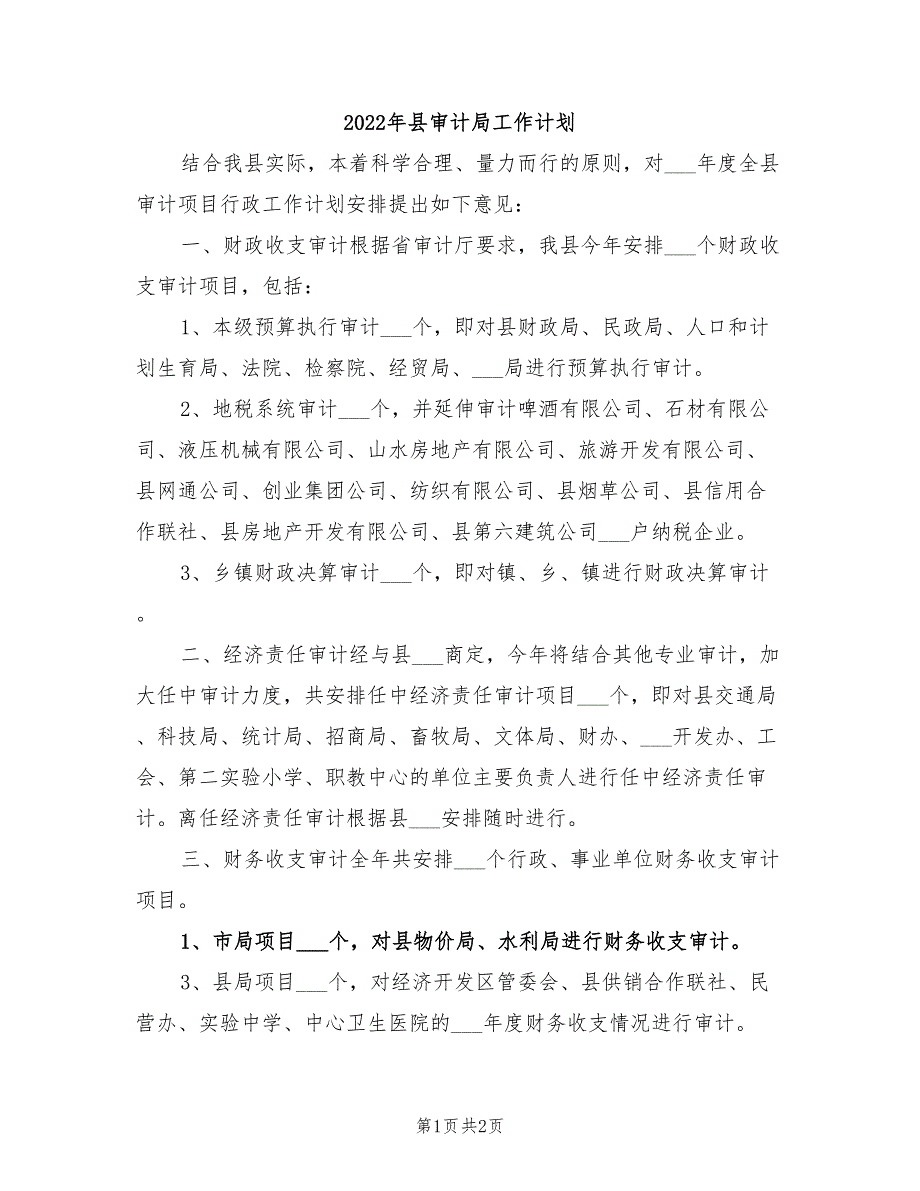 2022年县审计局工作计划
结合我县实际，本着科学合理、量力而行的原则，对___年度全县
审计项目行政工作计划安排提出如下意见：
一、财政收支审计根据省审计厅要求，我县今年安排___个财政收
支审计项目，包括：
1、本级预算执行审计___个，即对县财政局、民政局、人口和计
划生育局、法院、检察院、经贸局、___局进行预算执行审计。
2、地税系统审计___个，并延伸审计啤酒有限公司、石材有限公
司、液压机械有限公司、山水房地产有限公司、旅游开发有限公司、
县网通公司、创业集团公司、纺织有限公司、县烟草公司、县信用合
作联社、县房地产开发有限公司、县第六建筑公司___户纳税企业。
3、乡镇财政决算审计___个，即对镇、乡、镇进行财政决算审计
。
二、经济责任审计经与县___商定，今年将结合其他专业审计，加
大任中审计力度，共安排任中经济责任审计项目___个，即对县交通局
、科技局、统计局、招商局、畜牧局、文体局、财办、___开发办、工
会、第二实验小学、职教中心的单位主要负责人进行任中经济责任审
计。离任经济责任审计根据县___安排随时进行。
三、财务收支审计全年共安排___个行政、事业单位财务收支审计
项目。
1、市局项目___个，对县物价局、水利局进行财务收支审计。
3、县局项目___个，对经济开发区管委会、县供销合作联社、民
营办、实验中学、中心卫生医院的___年度财务收支情况进行审计。
第1页共2页